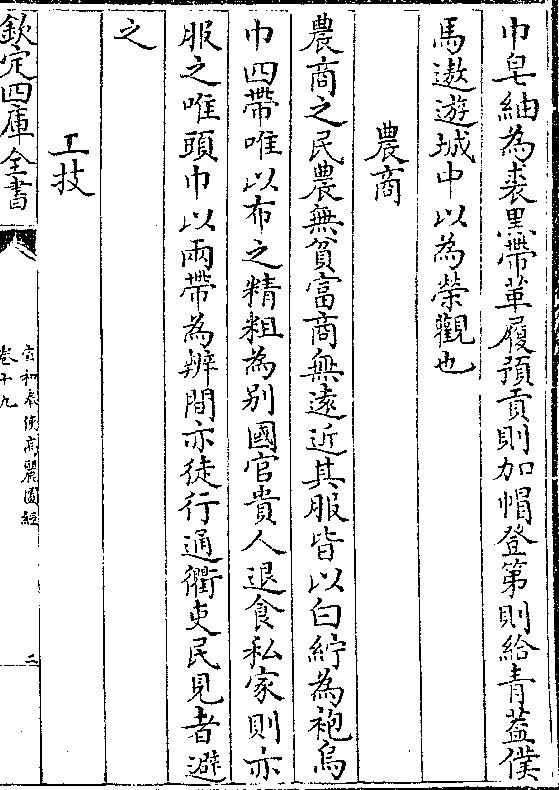 巾皂紬為裘黒帶革履預貢則加帽登第則給青蓋僕
馬遨遊城中以為榮觀也
農商
農商之民農無貧富商無遠近其服皆以白紵為袍烏
巾四帶唯以布之精粗為别國官貴人退食私家則亦
服之唯頭巾以兩帶為辨間亦徒行通衢吏民見者避
之
工技
欽定四庫全書
宣和奉使髙麗圖經
卷十九
二